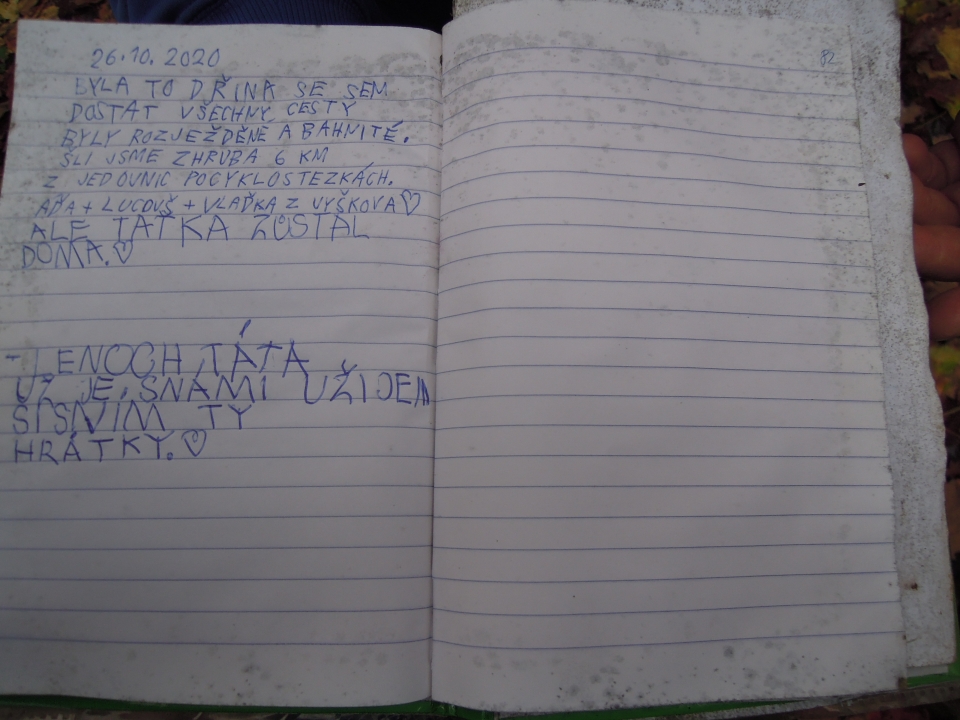 26.10. 2020
82
BYLA TO DŘINA SE SEM
DOSTAT VŠECHNY CESTY
BYLY ROZJEŽDĚNÉ A BAHNITÉ.
ŠLI JSME ZHRUBA 6 KM
Z JEDOVNIC POCYKLOSTEZKÁCH.
AĎA + LUCOUŠ + VLAĎKA Z VYŠKOVA ♡
ALE TAŤKA ZŮSTAL
DOMA. ♡
- LENOCH TÁTA
UŽ JE, SNÁMI UŽIJEM
SI SNÍM TY
HRÁTKY. ♡